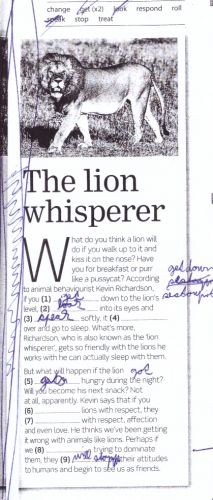 change get (x2) look respond roll
speak stop treat
The lion
whisperer
What do you think a lion will
do if you walk up to it and
kiss it on the nose? Have
you for breakfast or purr
like a pussycat? According
to animal behaviourist Kevin Richardson,
if you (1) get down to the lion's
level, (2) look into its eyes and
(3) speak softly, it (4)
over and go to sleep. What's more,
Richardson, who is also known as the 'lion
whisperer', gets so friendly with the lions he
works with he can actually sleep with them.
But what will happen if the lion got
(5) gets hungry during the night?
Will you become his next snack? Not
at all, apparently. Kevin says that if you
(6) lions with respect, they
(7) with respect, affection
and even love. He thinks we've been getting
it wrong with animals like lions. Perhaps if
we (8) trying to dominate
them, they (9) will their attitudes
to humans and begin to see us as friends.
get down